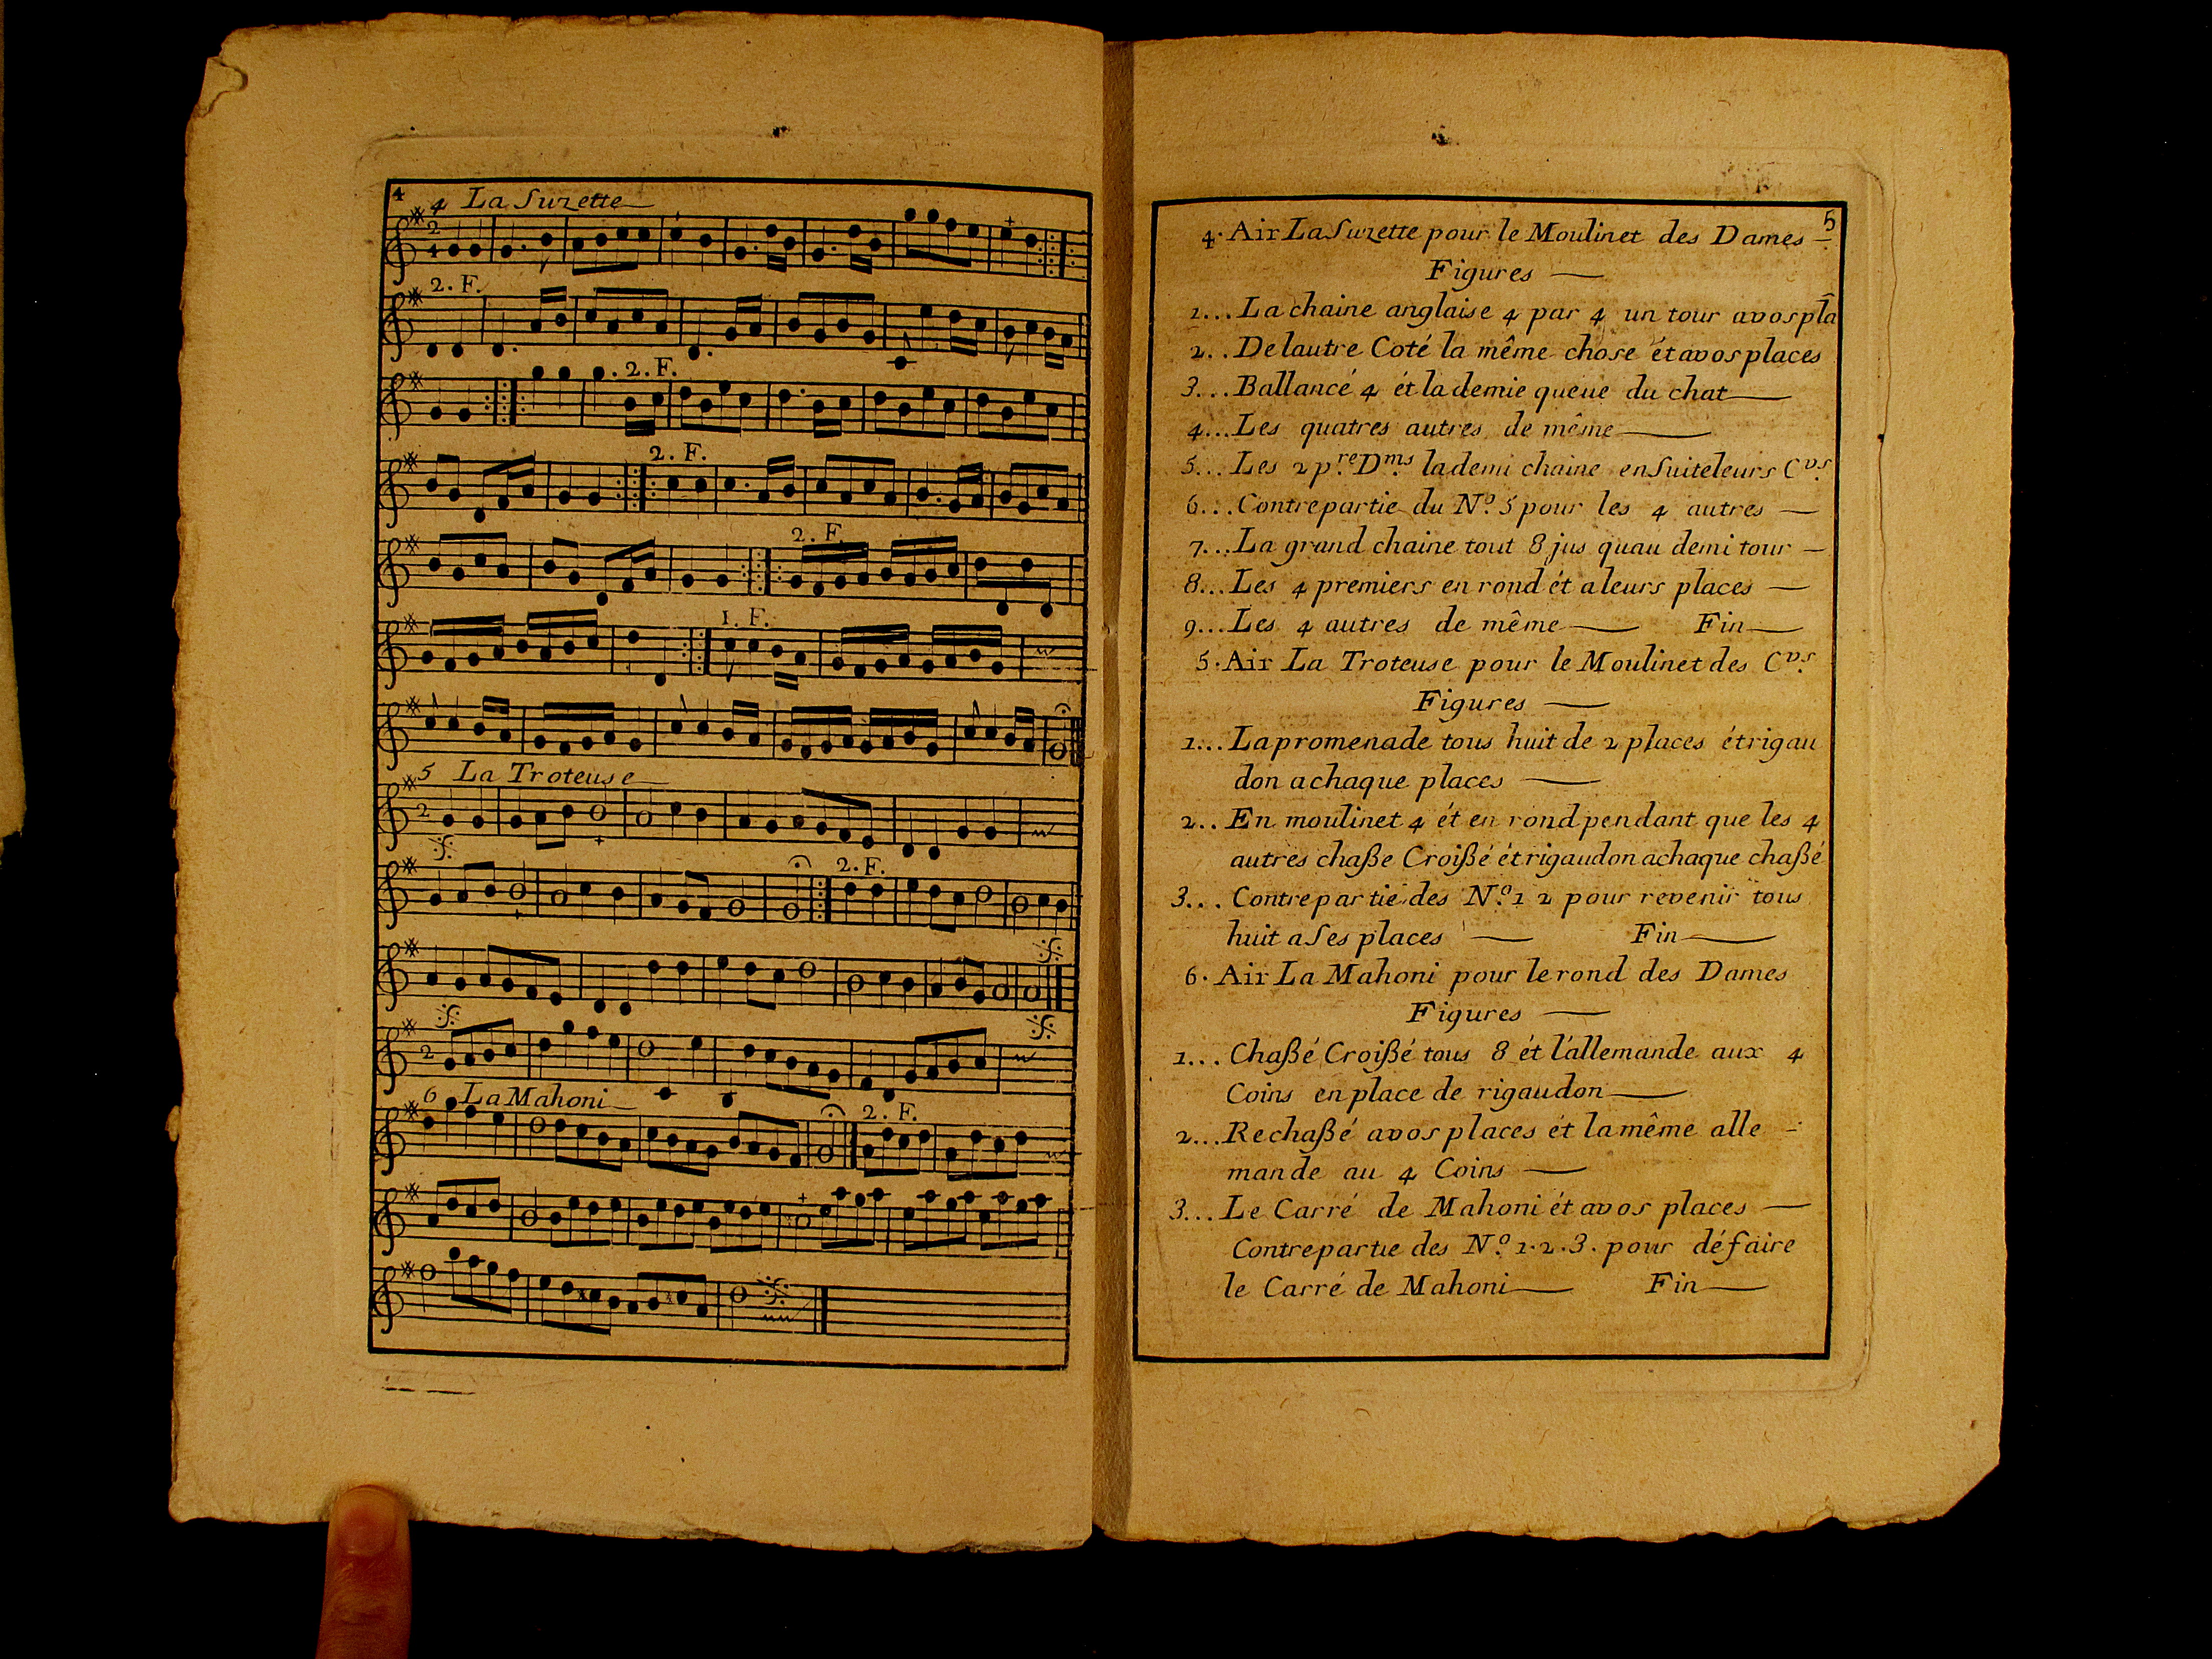 4
4 La Suzette
2
4
2. F.
2. F.
2. F.
2. F.
1. F.
5 La Troteuse
2
2. F.
2
6 La Mahoni
2. F.
5
4. Air La Suzette pour le Moulinet des Dames
Figures
1... La chaine anglaise 4 par 4 un tour avos pla
2.. De lautre Coté la même chose ét avos places
3... Ballancé 4 ét la demie queue du chat
4... Les quatres autres de même
5... Les 2 p.re D.ms la demi chaine en Suite leurs C.vs
6... Contrepartie du N.o 5 pour les 4 autres
7... La grand chaine tout 8 jus quau demi tour
8... Les 4 premiers en rond ét a leurs places
9... Les 4 autres de même Fin
5. Air La Troteuse pour le Moulinet des C.vs
Figures
1... La promenade tous huit de 2 places ét rigau
don a chaque places
2.. En moulinet 4 ét en rond pendant que les 4
autres chaßé Croißé ét rigaudon a chaque chaßé
3... Contrepartie des N.o 1 2 pour revenir tous
huit a Ses places Fin
6. Air La Mahoni pour le rond des Dames
Figures
1... Chaßé Croißé tous 8 ét l'allemande aux 4
Coins en place de rigaudon
2... Rechaßé avos places ét la même alle
mande au 4 Coins
3... Le Carré de Mahoni ét avos places
Contrepartie des N.o 1. 2. 3. pour défaire
le Carré de Mahoni Fin